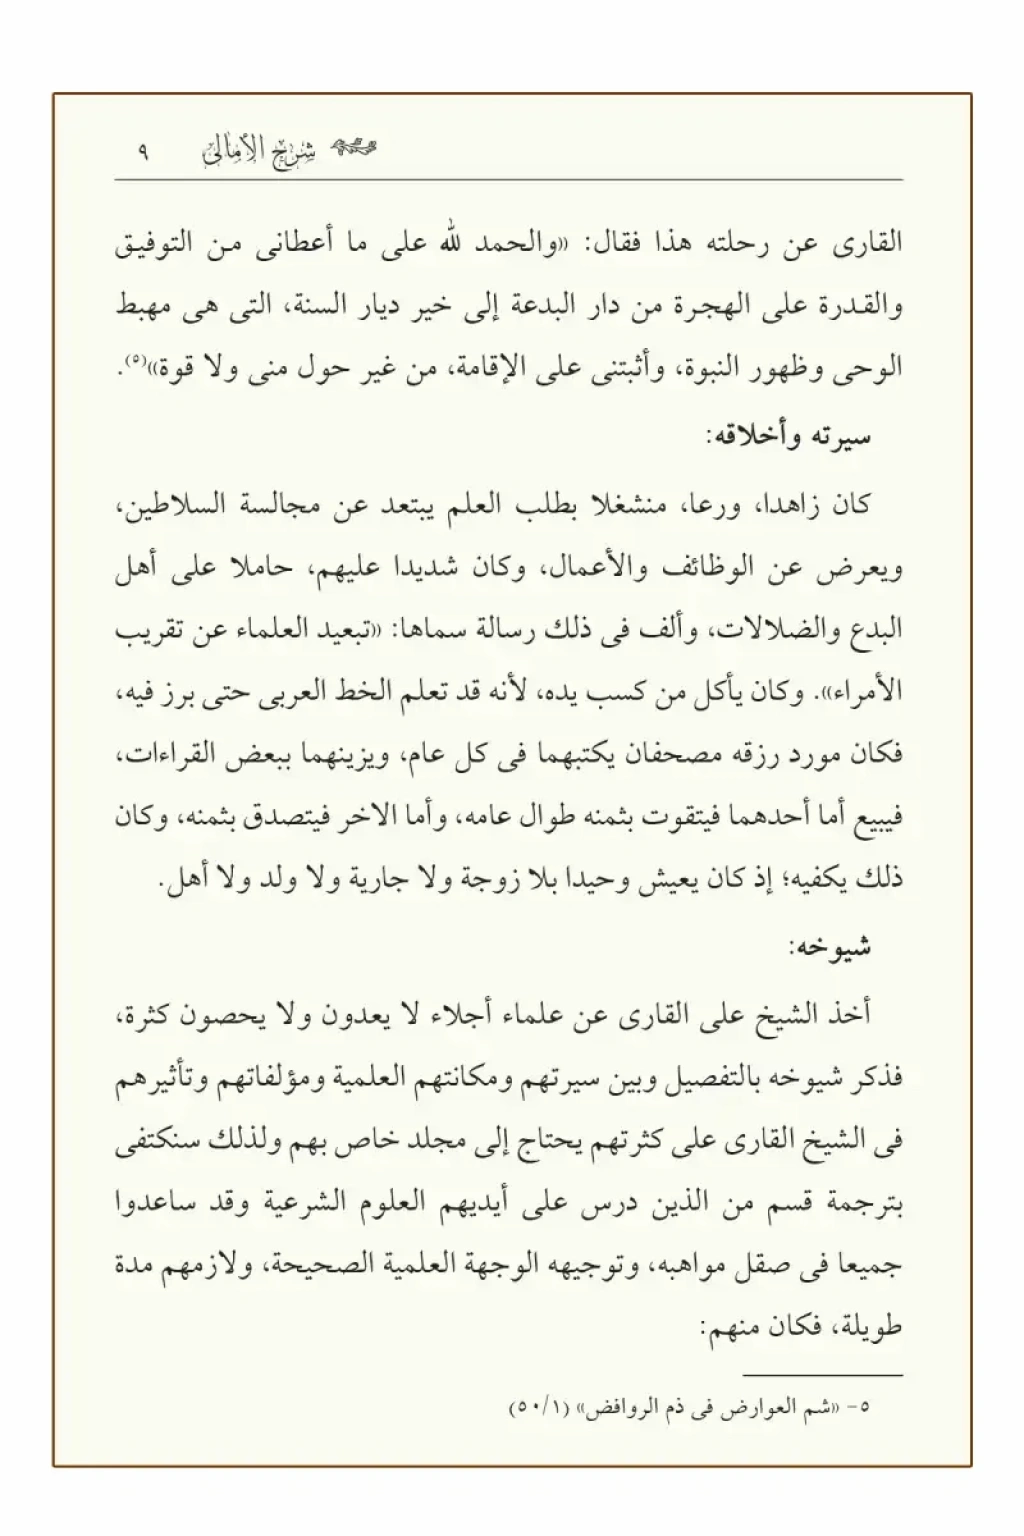 شرح الأمالى ٩
القارى عن رحلته هذا فقال: «والحمد لله على ما أعطانى من التوفيق
والقدرة على الهجرة من دار البدعة إلى خير ديار السنة، التى هى مهبط
الوحى وظهور النبوة، وأثبتنى على الإقامة، من غير حول منى ولا قوة»(٥).
سيرته وأخلاقه:
كان زاهدا، ورعا، منشغلا بطلب العلم يبتعد عن مجالسة السلاطين،
ويعرض عن الوظائف والأعمال، وكان شديدا عليهم، حاملا على أهل
البدع والضلالات، وألف فى ذلك رسالة سماها: «تبعيد العلماء عن تقريب
الأمراء». وكان يأكل من كسب يده، لأنه قد تعلم الخط العربى حتى برز فيه،
فكان مورد رزقه مصحفان يكتبهما فى كل عام، ويزينهما ببعض القراءات،
فيبيع أما أحدهما فيتقوت بثمنه طوال عامه، وأما الاخر فيتصدق بثمنه، وكان
ذلك يكفيه؛ إذ كان يعيش وحيدا بلا زوجة ولا جارية ولا ولد ولا أهل.
شيوخه:
أخذ الشيخ على القارى عن علماء أجلاء لا يعدون ولا يحصون كثرة،
فذكر شيوخه بالتفصيل وبين سيرتهم ومكانتهم العلمية ومؤلفاتهم وتأثيرهم
فى الشيخ القارى على كثرتهم يحتاج إلى مجلد خاص بهم ولذلك سنكتفى
بترجمة قسم من الذين درس على أيديهم العلوم الشرعية وقد ساعدوا
جميعا فى صقل مواهبه، وتوجيهه الوجهة العلمية الصحيحة، ولازمهم مدة
طويلة، فكان منهم:
٥- «شم العوارض فى ذم الروافض» (٥٠/١)